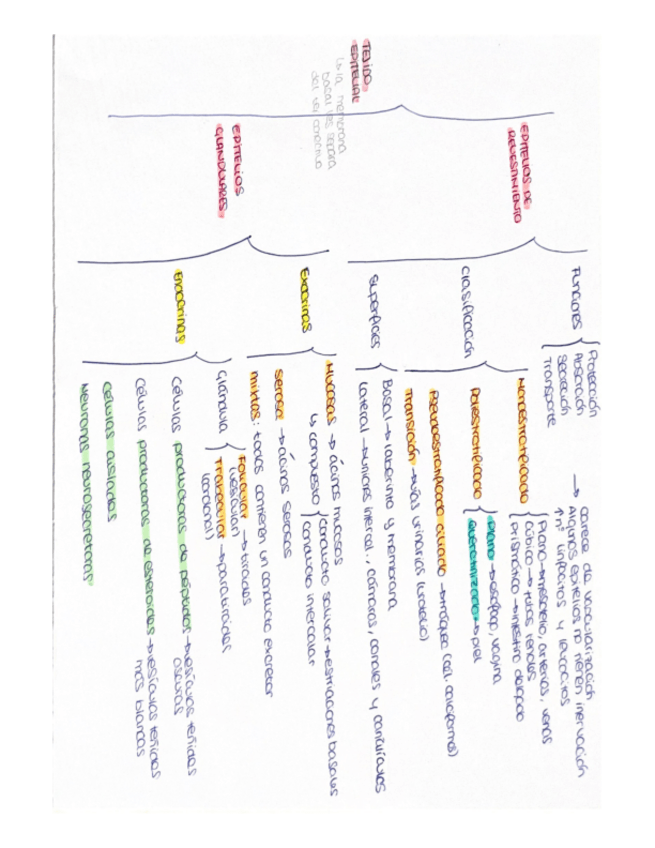 TEJIDO
EPITELIAL
↳ la membrana
basal les separa
del tej conectivo
EPITELIOS DE
REVESTIMIENTO
Funciones
Protección
Absorción
Secreción
Transporte
→ carece de vascularización
Algunos epitelios no tienen inervación
↑nº linfocitos y leucocitos
Clasificación
Monoestratificado
Plano → mesotelio, arterias, venas
Cúbico → tubos renales
Prismático → intestino delgado
Poliestratificado
Plano → esófago, vagina
Queratinizado → piel
Pseudoestratificado ciliado → tráquea (cél. caliciformes)
Transición → vías urinarias (urotelio)
Superficies
Basal → laberinto y membrana
Lateral → uniones intercel., cámaras, canales y canalículos
EPITELIOS
GLANDULARES
Exocrinas
Mucosas → ácinos mucosos
↳ compuesto
Conducto salivar → estriaciones basales
Conducto intercalar
Serosa → ácinos serosos
mixtas: todas contienen un conducto excretor
Endocrinas
Glándula
Folicular → tiroides
(vesicular)
Trabecular → paratiroides
(cordonal)
Células productoras de péptidos → vesículas teñidas
oscuras
Células productoras de esteroides → vesículas teñidas
más blandas
Células aisladas
Neuronas neurosecretoras